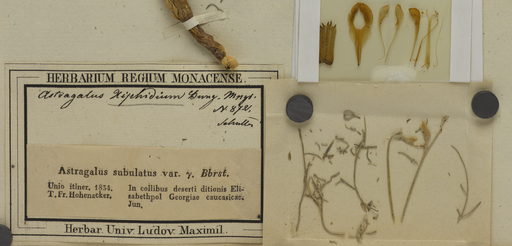 HERBARIUM REGIUM MONACENSE.
Astragalus Xiphidium Bung. Mngr.
N. 872.
Astragalus subulatus var. γ. Bbrst.
Unio itiner. 1834. In collibus deserti ditionis Eli-
T. Fr. Hohenacker. sabethpol Georgiae caucasicae.
Jun.
Herbar. Univ. Ludov. Maximil.